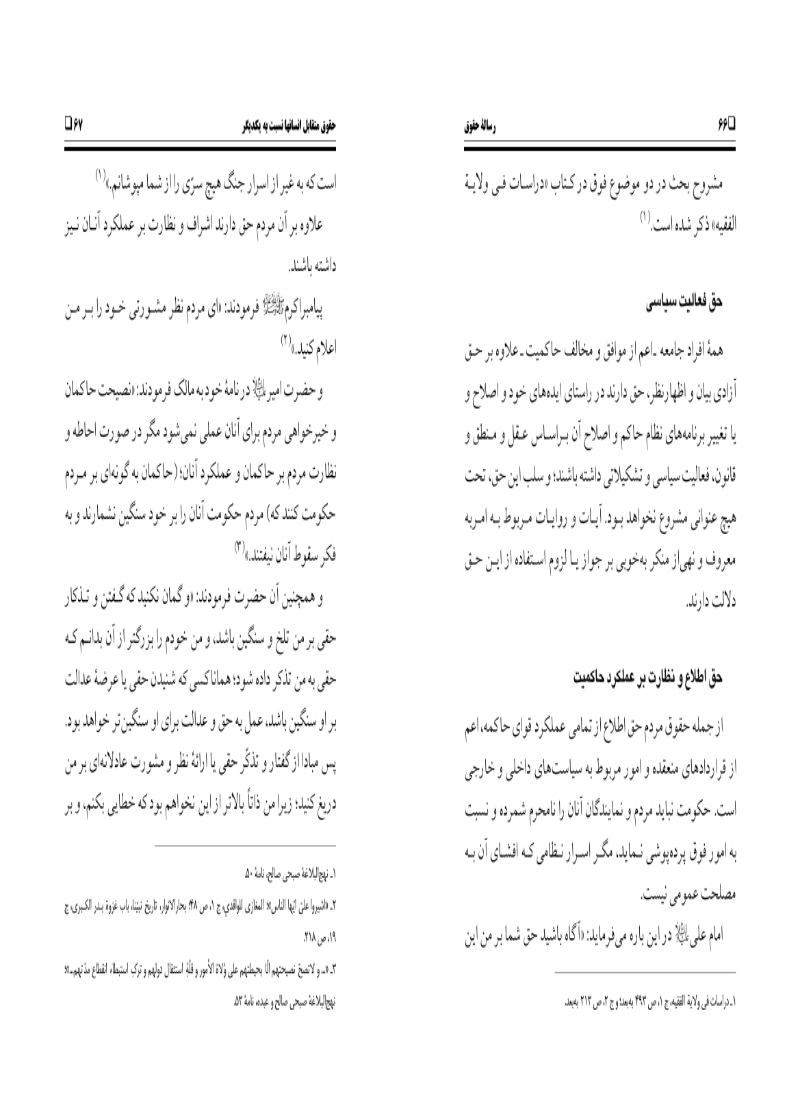 ❑۶۶ رسالهٔ حقوق
مشروح بحث در دو موضوع فوق در کتاب «دراسات فی ولایة
الفقیه» ذکر شده است.(۱)
حق فعالیت سیاسی
همهٔ افراد جامعه ـ اعم از موافق و مخالف حاکمیت ـ علاوه بر حق
آزادی بیان و اظهارنظر، حق دارند در راستای ایده‌های خود و اصلاح و
یا تغییر برنامه‌های نظام حاکم و اصلاح آن براساس عقل و منطق و
قانون، فعالیت سیاسی و تشکیلاتی داشته باشند؛ و سلب این حق، تحت
هیچ عنوانی مشروع نخواهد بود. آیات و روایات مربوط به امربه
معروف و نهی‌از منکر به‌خوبی بر جواز یا لزوم استفاده از این حق
دلالت دارند.
حق اطلاع و نظارت بر عملکرد حاکمیت
از جمله حقوق مردم حق اطلاع از تمامی عملکرد قوای حاکمه، اعم
از قراردادهای منعقده و امور مربوط به سیاست‌های داخلی و خارجی
است. حکومت نباید مردم و نمایندگان آنان را نامحرم شمرده و نسبت
به امور فوق پرده‌پوشی نماید، مگر اسرار نظامی که افشای آن به
مصلحت عمومی نیست.
امام علی در این باره می‌فرماید: «آگاه باشید حق شما بر من این
۱ـ دراسات فی ولایة الفقیه، ج ۱، ص ۴۹۳ به‌بعد؛ و ج ۲، ص ۲۱۳ به‌بعد.
حقوق متقابل انسانها نسبت به یکدیگر ۶۷❑
است که به غیر از اسرار جنگ هیچ سرّی را از شما مپوشانم.»(۱)
علاوه بر آن مردم حق دارند اشراف و نظارت بر عملکرد آنان نیز
داشته باشند.
پیامبراکرم ﷺ فرمودند: «ای مردم نظر مشورتی خود را بر من
اعلام کنید.»(۲)
و حضرت امیر در نامهٔ خود به مالک فرمودند: «نصیحت حاکمان
و خیرخواهی مردم برای آنان عملی نمی‌شود مگر در صورت احاطه و
نظارت مردم بر حاکمان و عملکرد آنان؛ (حاکمان به گونه‌ای بر مردم
حکومت کنند که) مردم حکومت آنان را بر خود سنگین نشمارند و به
فکر سقوط آنان نیفتند.»(۳)
و همچنین آن حضرت فرمودند: «و گمان نکنید که گفتن و تذکار
حقی بر من تلخ و سنگین باشد، و من خودم را بزرگتر از آن بدانم که
حقی به من تذکر داده شود؛ همانا کسی که شنیدن حقی یا عرضهٔ عدالت
بر او سنگین باشد، عمل به حق و عدالت برای او سنگین‌تر خواهد بود.
پس مبادا از گفتار و تذکّر حقی یا ارائهٔ نظر و مشورت عادلانه‌ای بر من
دریغ کنید؛ زیرا من ذاتاً بالاتر از این نخواهم بود که خطایی بکنم، و بر
۱ـ نهج‌البلاغهٔ صبحی صالح، نامهٔ ۵۰.
۲ـ «اشیروا علیّ ایّها الناس»؛ المغازی للواقدی، ج ۱، ص ۴۸؛ بحارالانوار، تاریخ نبیّنا، باب غزوة بدر الکبری، ج
۱۹، ص ۲۱۸.
۳ـ «... و لاتصحّ نصیحتهم الّا بحیطتهم علی وُلاة الأمور و قلّة استثقال دولهم و ترک استبطاء انقطاع مدّتهم...»؛
نهج‌البلاغهٔ صبحی صالح و عبده، نامهٔ ۵۳.